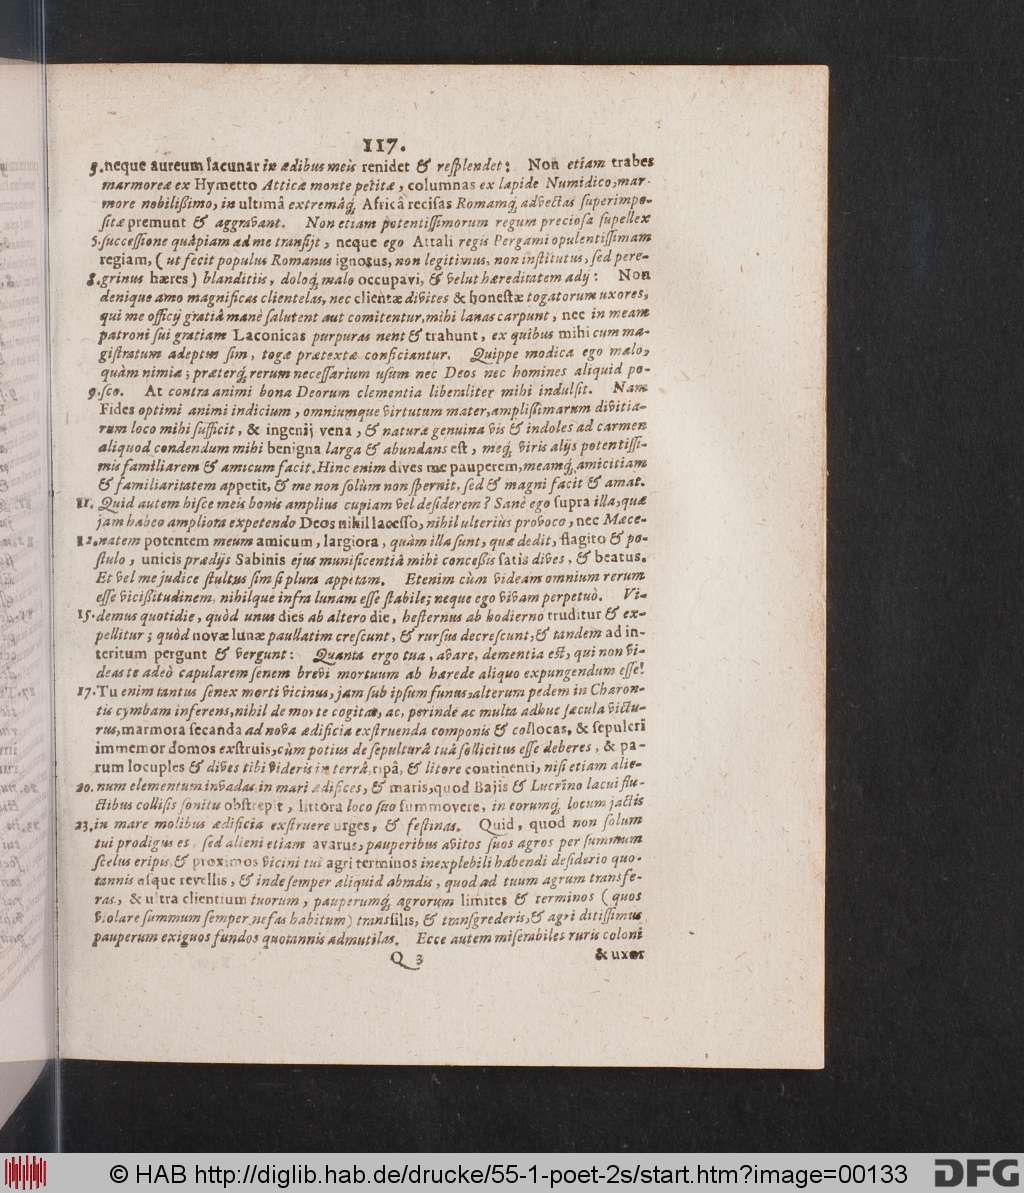 117.
3. neque aureum lacunar in ædibus meis renidet & resplendet: Non etiam trabes
marmoreæ ex Hymetto Atticæ monte petitæ, columnas ex lapide Numidico, mar-
more nobilißimo, in ultimâ extremâq́; Africâ recisas Romamq́; advectas superimpo-
sitæ premunt & aggravant. Non etiam potentissimorum regum preciosa supellex
5. successione quâpiam ad me transijt, neque ego Attali regis Pergami opulentissimam
regiam, (ut fecit populus Romanus ignotus, non legitimus, non institutus, sed pere-
8. grinus hæres) blanditiis, doloq́; malo occupavi, & velut hæreditatem adij: Non
denique amo magnificas clientelas, nec clientæ divites & honestæ togatorum uxores,
qui me officij gratiâ manè salutent aut comitentur, mihi lanas carpunt, nec in meam
patroni sui gratiam Laconicas purpuras nent & trahunt, ex quibus mihi cum ma-
gistratum adeptus sim, togæ prætextæ conficiantur. Quippe modica ego malo,
quàm nimia; præterq́; rerum necessarium usum nec Deos nec homines aliquid po-
9. sco. At contra animi bona Deorum clementia liberaliter mihi indulsit. Nam
Fides optimi animi indicium, omniumque virtutum mater, amplissimarum divitia-
rum loco mihi sufficit, & ingenij vena, & naturæ genuina vis & indoles ad carmen
aliquod condendum mihi benigna larga & abundans est, meq́; viris alijs potentissi-
mis familiarem & amicum facit. Hinc enim dives me pauperem, meamq́; amicitiam
& familiaritatem appetit, & me non solùm non spernit, sed & magni facit & amat.
11. Quid autem hisce meis bonis amplius cupiam vel desiderem? Sanè ego supra illa, quæ
jam habeo ampliora expetendo Deos nihil lacesso, nihil ulteriùs provoco, nec Mæce-
12. natem potentem meum amicum, largiora, quàm illa sunt, quæ dedit, flagito & po-
stulo, unicis prædijs Sabinis ejus munificentiâ mihi conceßis satis dives, & beatus.
Et vel me judice stultus sim si plura appetam. Etenim cùm videam omnium rerum
esse vicißitudinem, nihilque infra lunam esse stabile; neque ego vivam perpetuò. Vi-
15. demus quotidie, quòd unus dies ab altero die, hesternus ab hodierno truditur & ex-
pellitur; quòd novæ lunæ paullatim crescunt, & rursus decrescunt, & tandem ad in-
teritum pergunt & vergunt: Quanta ergo tua, avare, dementia est, qui non vi-
deas te adeò capularem senem brevi mortuum ab hærede aliquo expungendum esse!
17. Tu enim tantus senex morti vicinus, jam sub ipsum funus, alterum pedem in Charon-
tis cymbam inferens, nihil de morte cogitas, ac, perinde ac multa adhuc sæcula victu-
rus, marmora secanda ad nova ædificia exstruenda componis & collocas, & sepulcri
immemor domos exstruis, cùm potius de sepulturâ tuâ sollicitus esse deberes, & pa-
rum locuples & dives tibi videris in terrâ, ripâ, & litore continenti, nisi etiam alie-
20. num elementum invadas, in mari ædifices, & maris, quod Bajis & Lucrino lacui flu-
ctibus collisis sonitu obstrepit, littora loco suo summovere, in eorumq́; locum jactis
23. in mare molibus ædificia exstruere urges, & festinas. Quid, quod non solum
tui prodigus es, sed alieni etiam avarus, pauperibus avitos suos agros per summum
scelus eripis & proximos vicini tui agri terminos inexplebili habendi desiderio quo-
tannis usque revellis, & inde semper aliquid abradis, quod ad tuum agrum transfe-
ras, & ultra clientium tuorum, pauperumq́; agrorum limites & terminos (quos
violare summum semper nefas habitum) transsilis, & transgrederis, & agri ditissimus
pauperum exiguos fundos quotannis admutilas. Ecce autem miserabiles ruris coloni
Q 3 & uxor
© HAB http://diglib.hab.de/drucke/55-1-poet-2s/start.htm?image=00133
DFG